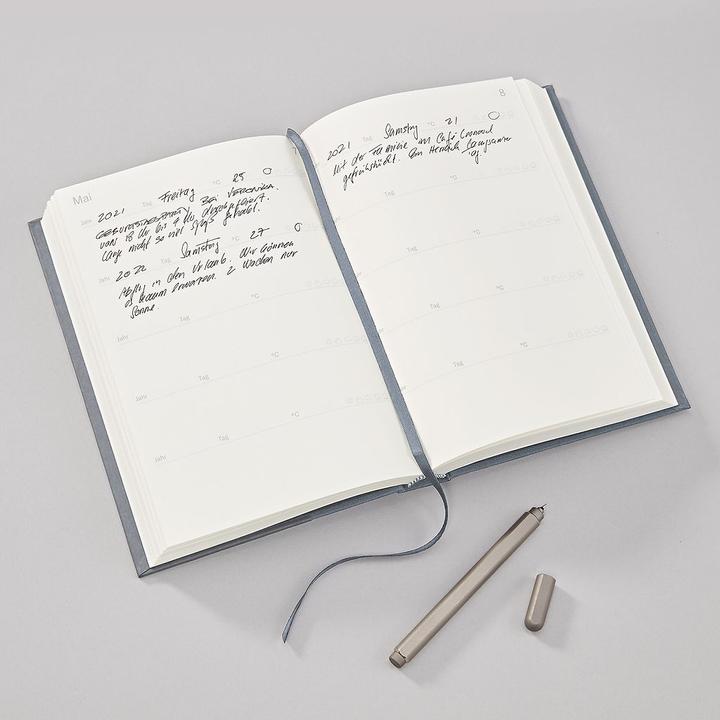 Mai
Jahr 2021 Tag Freitag °C 25
GEBURTSTAGSPARTY BEI VERONIKA.
von 18 Uhr bis 4 Uhr durchgefeiert.
Lange nicht so viel Spaß gehabt.
Jahr 2022 Samstag 27
Abflug in den Urlaub. Wir können
es kaum erwarten. 2 Wochen nur
Sonne.
Jahr Tag °C
Jahr Tag °C
Jahr Tag °C
8
2021 Tag Samstag °C 21
Mit der Familie im Café Leonard
gefrühstückt. Ein Herrlich Langsamer
Tag.
Tag °C
Tag °C
Tag °C
Tag °C